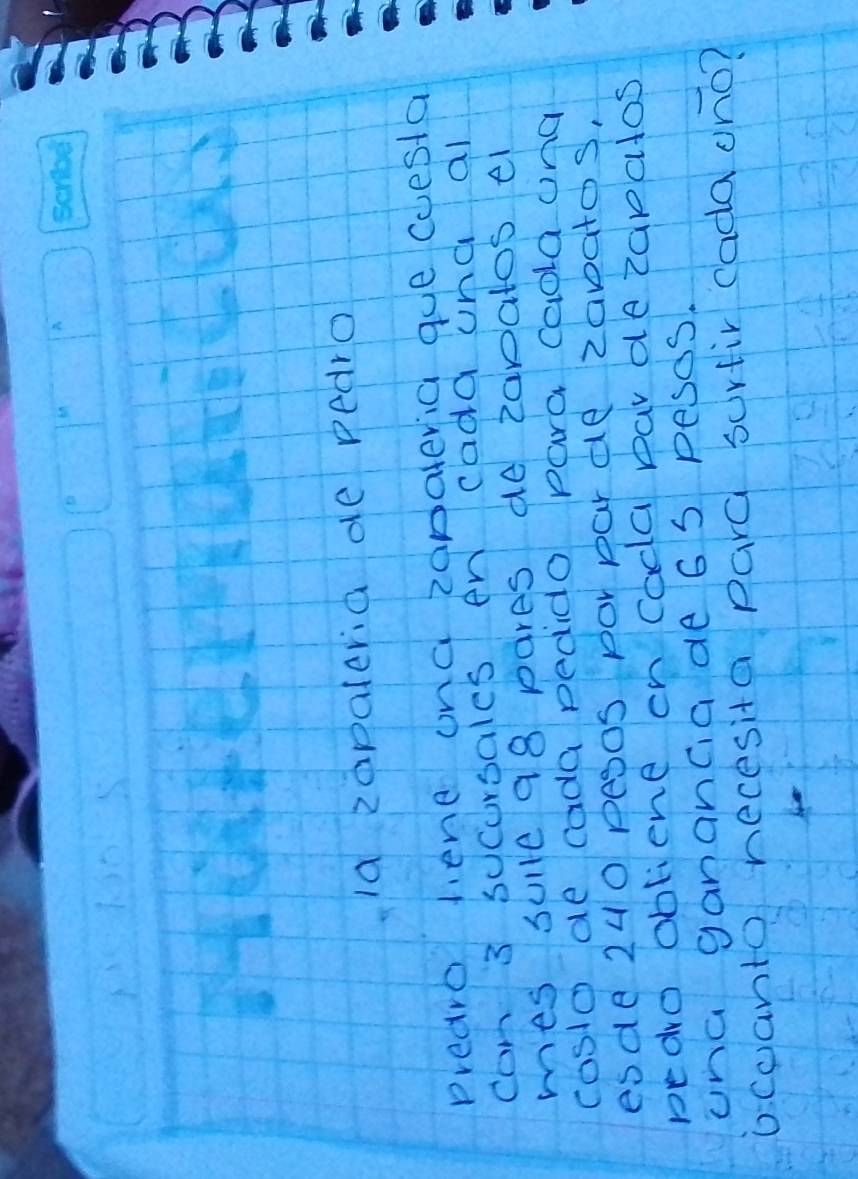 scribe
Matematicas
la zapateria de pedro
predro tiene una zapateria que cuesta
con 3 sucursales en cada una al
mes surte 98 pares de zapatos el
costo de cada pedido para cada una
es de 240 pesos por par de zapatos.
pedro obtiene en cada par de zapatos
una ganancia de 65 pesos.
¿cuanto necesita para surtir cada uno?